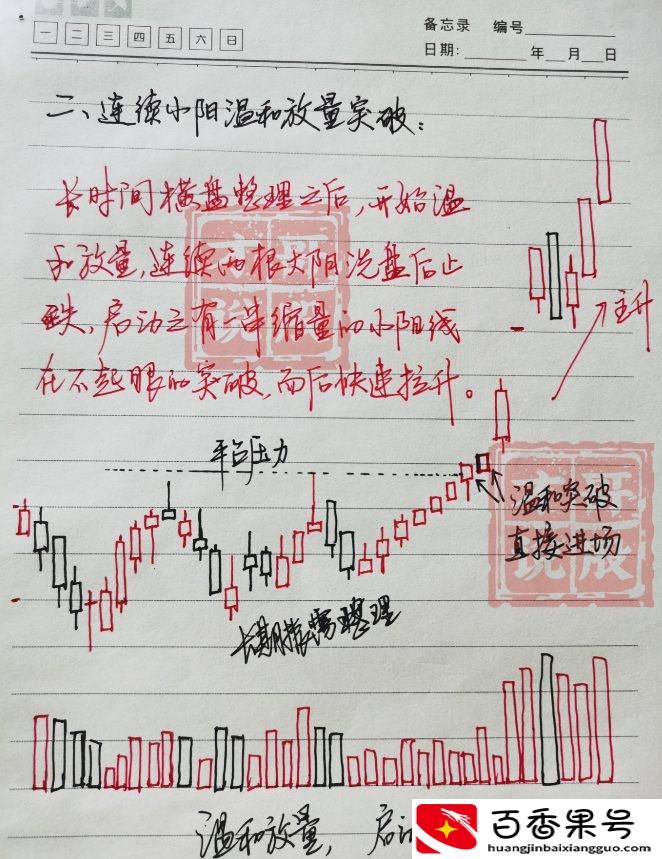 备忘录 编号
一 二 三 四 五 六 日
日期: 年 月 日
二、连续小阳温和放量突破：
长时间横盘整理之后，开始温
和放量，连续两根大阳洗盘后止
跌，启动之有一串缩量的小阳线
在不起眼的突破，而后快速拉升。
主升
平台压力
温和突破
直接进场
长期横盘整理
温和放量，启动
百香果号
huangjinbaixiangguo.com